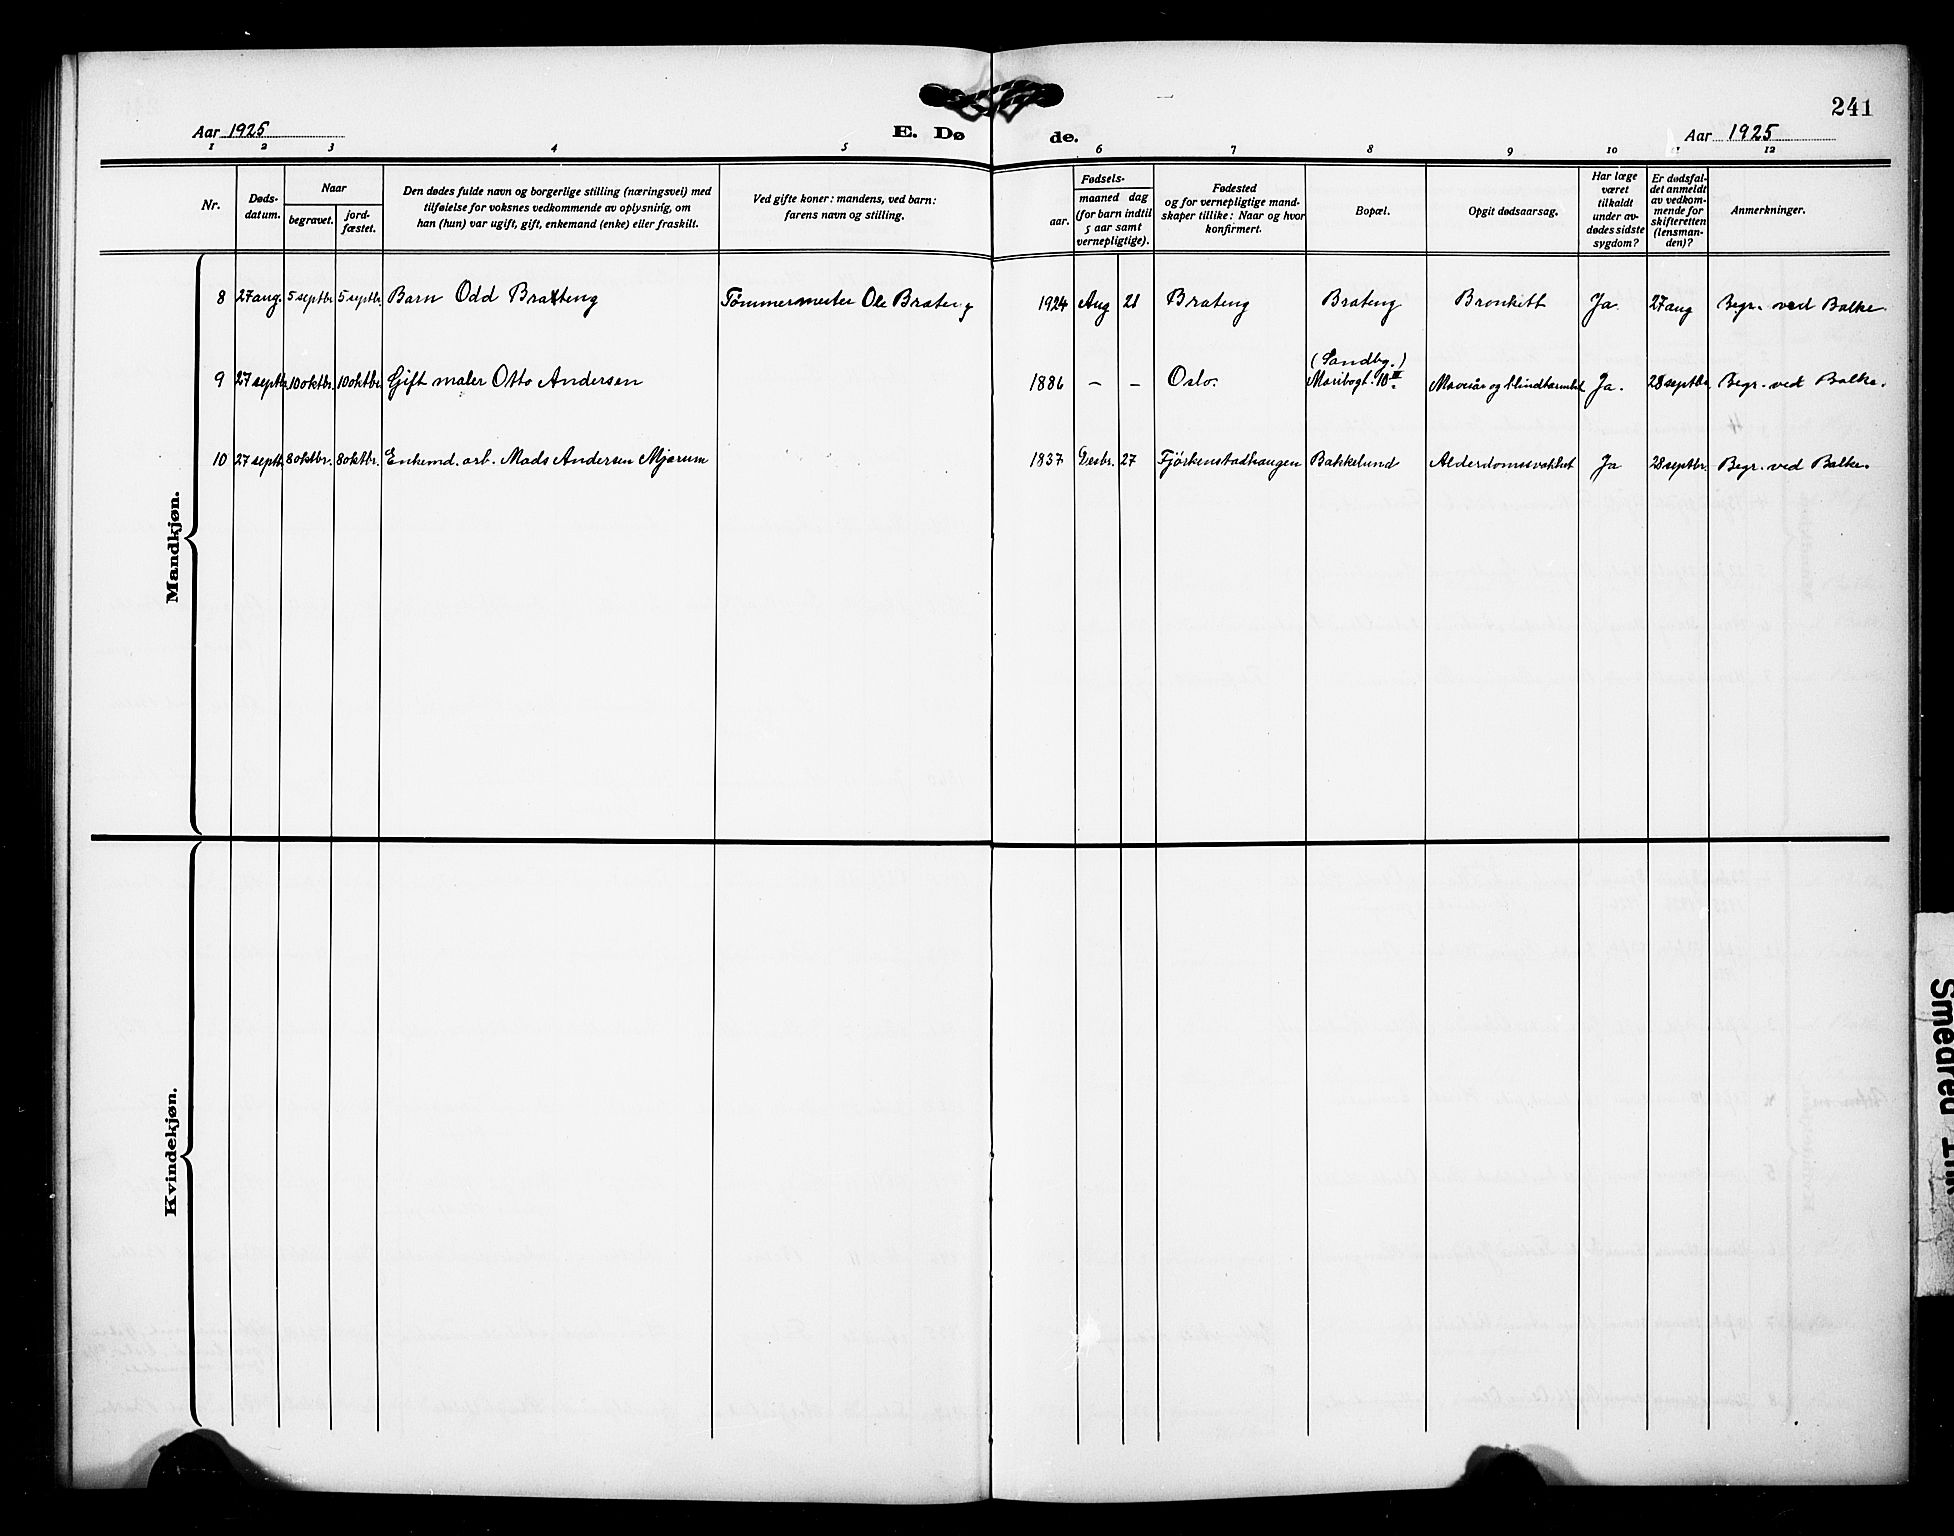 241
Aar 1925
E. Dø
de.
Aar 1925
1 2 3 4 5 6 7 8 9 10 11 12
Nr.
Døds-
datum.
Naar
begravet.
jord-
fæstet.
Den dødes fulde navn og borgerlige stilling (næringsvei) med
tilføielse for voksnes vedkommende av oplysning, om
han (hun) var ugift, gift, enkemand (enke) eller fraskilt.
Ved gifte koner: mandens, ved barn:
farens navn og stilling.
Fødsels-
aar.
maaned dag
(for barn indtil
5 aar samt
vernepligtige).
Fødested
og for vernepligtige mand-
skaper tillike: Naar og hvor
konfirmert.
Bopæl.
Opgit dødsaarsag.
Har læge
været
tilkaldt
under av-
dødes sidste
sygdom?
Er dødsfal-
det anmeldt
av vedkom-
mende for
skifteretten
(lensman-
den)?
Anmerkninger.
Mandkjøn.
8 27 aug. 5 septbr 5 septbr. Barn Odd Brateng Tømmermester Ole Brateng 1924 Aug 21 Brateng Brateng Bronkitt Ja. 27 aug Begr. ved Balke.
(Sandbg.)
9 27 septbr. 10 oktbr. 10 oktbr. Gift maler Otto Andersen 1886 – – Oslo. Maribogt. 10 III Mavesår og blindtarmbet Ja. 28 septbr. Begr. ved Balke.
10 27 septb. 8 oktbr. 8 oktbr. Enkemd. arb. Mads Andersen Mjørum 1837 Desbr. 27 Fjörkenstadhaugen Bakkelund Alderdomssvakhet Ja 28 septbr. Begr. ved Balke.
Kvindekjøn.
Smeared Ink